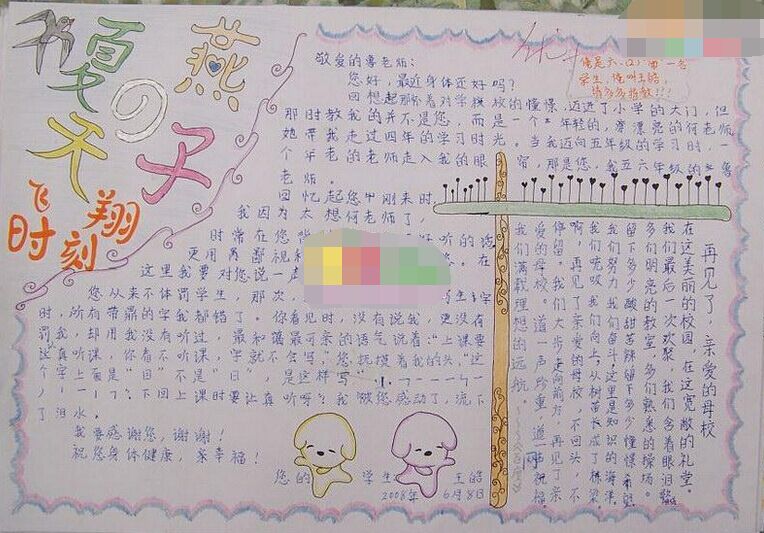 夏天の燕子
飞翔时刻
敬爱的鲁老师：
您好，最近身体还好吗？
回想起那怀着对学校的憧憬，迈进了小学的大门，但
那时教我的并不是您，而是一个年轻的，漂亮的何老师
她带我走过四年的学习时光。当我迈向五年级的学习时，一
个年老的老师走入我的眼帘，那是您，我五六年级的鲁
老师。
回忆起您刚来时
我因为太想何老师了，
时常在您背 好听的话
更用两 鄙视和 在
这里我要对您说一声
您从来不体罚学生，那次， 写生字
时，所有带鼎的字我都错了。你看见时，没有说我，更没有
罚我，却用我没有听过，最和蔼最可亲的语气说着“上课要
认真听课，你看不听课，字就不会写。”您抚摸着我的头，“这
个字上面是“目”不是“日”，是这样写
下回上课时要认真听呀？我被您感动了，流下
了泪水。
我要感谢您，谢谢！
祝您身体健康，幸福！
您的学生 王皓
2008年6月8日
俺是六、(2)班一名
学生，俺叫王皓，
请多多指教！！！
再见了，亲爱的母校
在这美丽的校园，在这宽敞的礼堂。
我们最后一次欢聚，我们含着眼泪
多们明亮的教室，多们熟悉的操场。
留下多少酸甜苦辣，留下多少憧憬希望
我们努力，我们奋斗，这里是知识的海洋
我们呼吸，我们向上，从树苗长成了栋梁
啊，再见了亲爱的母校，不回头，不
停留。我们大步走向前方，再见了亲
爱的母校。道一声珍重，道一声祝福。
我们满载理想的远航。